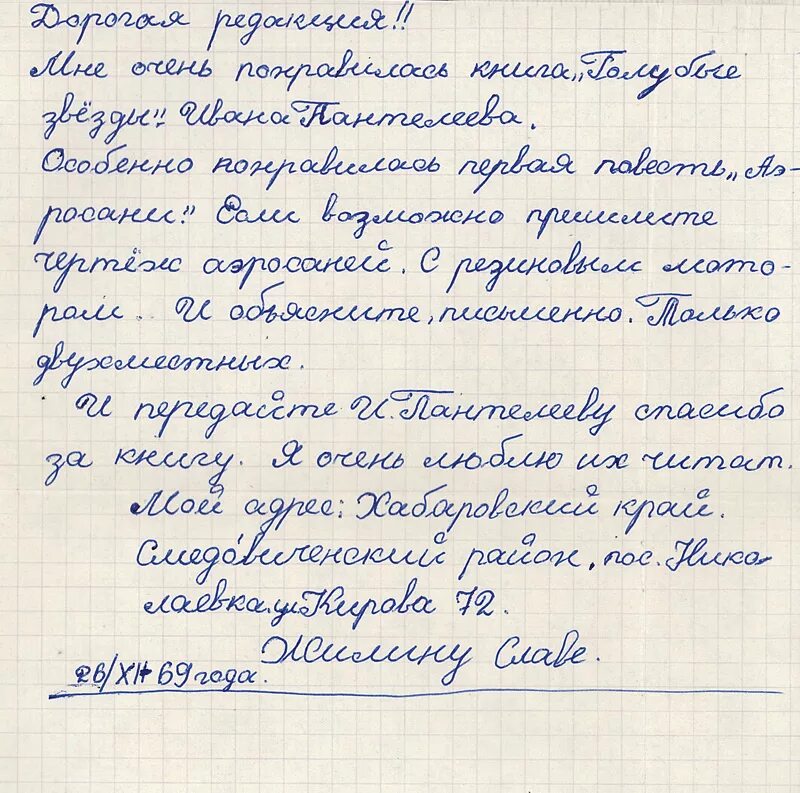 Дорогая редакция!!
Мне очень понравилась книга „Голубые
звёзды". Ивана Пантелеева.
Особенно понравилась первая повесть „Аэ-
росани". Если возможно пришлите
чертёж аэросаней. С резиновым мото-
ром.. И объясните, письменно. Только
двухместных.
И передайте И. Пантелееву спасибо
за книгу. Я очень люблю их читат.
Мой адрес: Хабаровский край.
Смидовиченский район, пос. Нико-
лаевка. ул Кирова 72.
Жилину Славе.
26/XII 69 года.